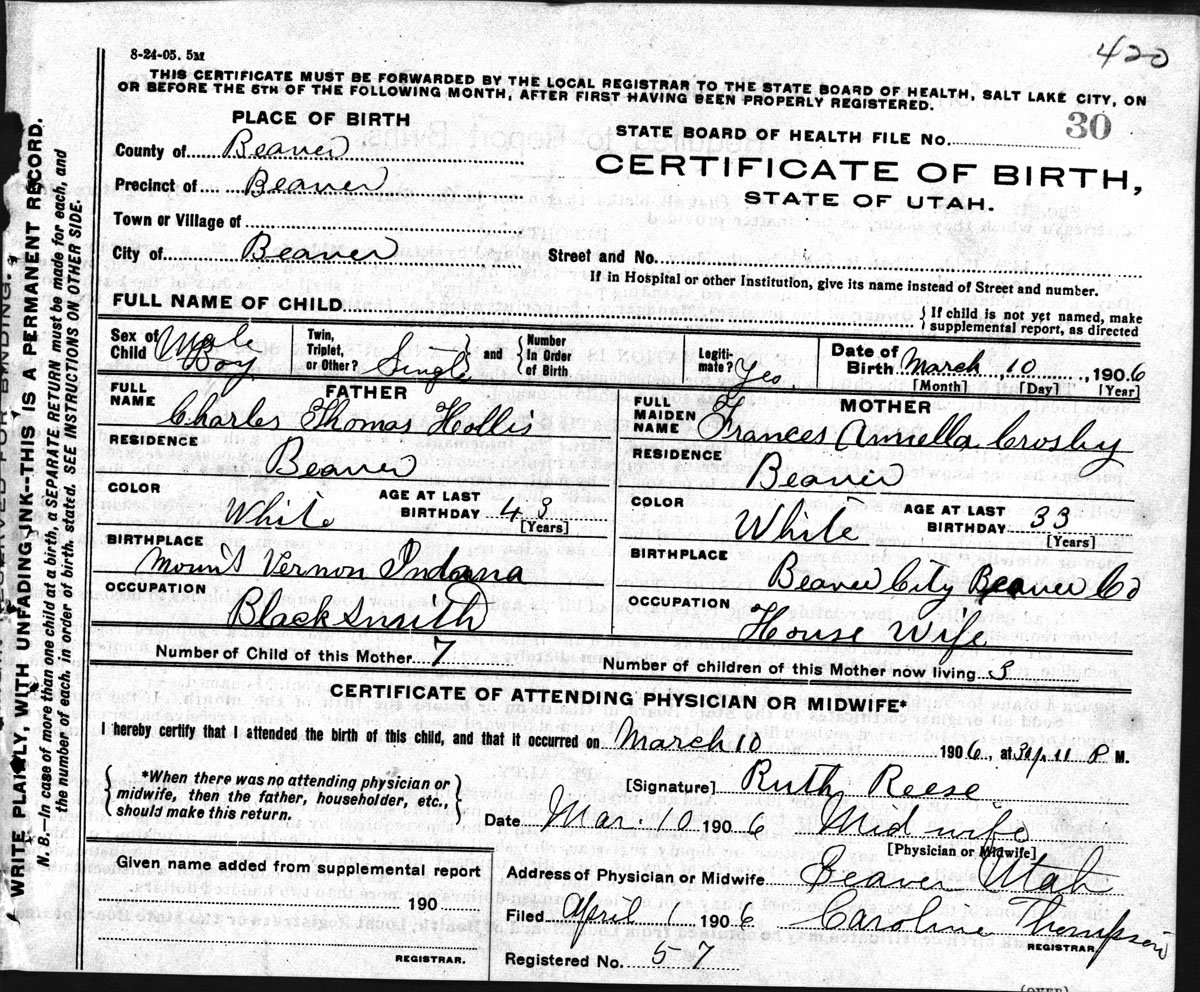 420
8-24-05. 5M
THIS CERTIFICATE MUST BE FORWARDED BY THE LOCAL REGISTRAR TO THE STATE BOARD OF HEALTH, SALT LAKE CITY, ON
OR BEFORE THE 5TH OF THE FOLLOWING MONTH, AFTER FIRST HAVING BEEN PROPERLY REGISTERED.
PLACE OF BIRTH
STATE BOARD OF HEALTH FILE No. 30
County of Beaver
CERTIFICATE OF BIRTH,
Precinct of Beaver
STATE OF UTAH.
Town or Village of
City of Beaver
Street and No.
If in Hospital or other Institution, give its name instead of Street and number.
FULL NAME OF CHILD
If child is not yet named, make
supplemental report, as directed
Sex of Child Male Boy
Twin, Triplet, or Other? Single and Number In Order of Birth
Legiti-mate? Yes.
Date of Birth March 10, 1906
[Month] [Day] [Year]
FATHER
FULL NAME Charles Thomas Hollis
RESIDENCE
Beaver
COLOR White
AGE AT LAST BIRTHDAY 43
[Years]
BIRTHPLACE
Mount Vernon Indiana
OCCUPATION
Blacksmith
MOTHER
FULL MAIDEN NAME Frances Annella Crosby
RESIDENCE
Beaver
COLOR White
AGE AT LAST BIRTHDAY 33
[Years]
BIRTHPLACE
Beaver City Beaver Co
OCCUPATION
House Wife
Number of Child of this Mother 7
Number of children of this Mother now living 3
CERTIFICATE OF ATTENDING PHYSICIAN OR MIDWIFE*
I hereby certify that I attended the birth of this child, and that it occurred on March 10 1906, at P M.
*When there was no attending physician or
midwife, then the father, householder, etc.,
should make this return.
[Signature] Ruth Reese
Date Mar. 10 1906 Mid wife
[Physician or Midwife]
Given name added from supplemental report
190
REGISTRAR.
Address of Physician or Midwife Beaver Utah
Filed April 1 1906 Caroline Thompson
REGISTRAR.
Registered No. 57
(OVER)
WRITE PLAINLY, WITH UNFADING INK--THIS IS A PERMANENT RECORD.
N. B.—In case of more than one child at a birth, a SEPARATE RETURN must be made for each, and
the number of each, in order of birth, stated. SEE INSTRUCTIONS ON OTHER SIDE.